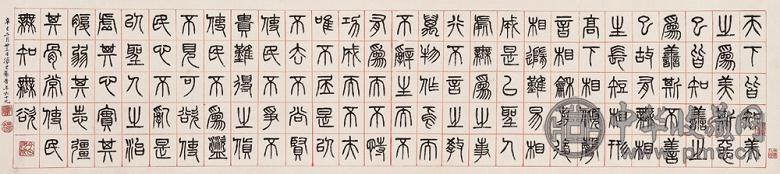 天下皆知美
之爲美斯惡
已皆知善之
爲善斯不善
已故有無相
生難易相成
長短相形高
下相傾音聲
相龢前後相
隨是以聖人
處無爲之事
行不言之教
萬物作焉而
不辭生而不
有爲而不恃
功成不居夫
唯不居是以
不去不尚賢
使民不爭不
貴難得之貨
使民不爲盜
不見可欲使
民心不亂是
以聖人之治
虛其心實其
腹弱其志彊
其骨常使民
無知無欲